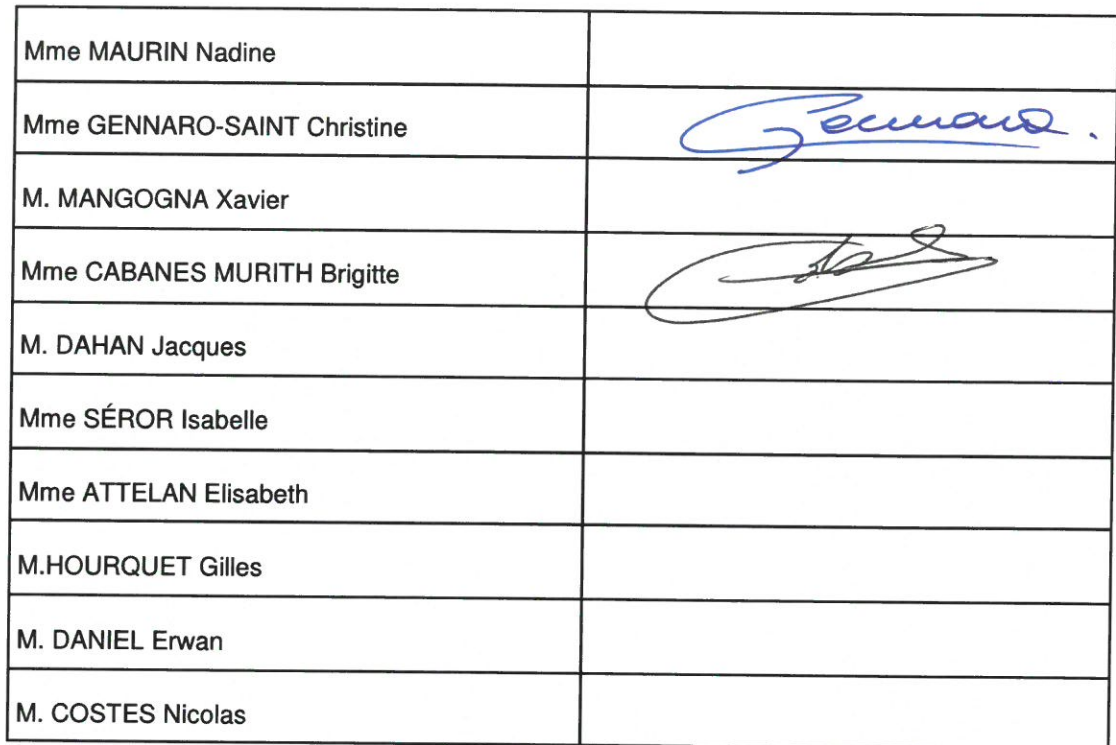 Mme MAURIN Nadine
Mme GENNARO-SAINT Christine
Gennaro.
M. MANGOGNA Xavier
Mme CABANES MURITH Brigitte
M. DAHAN Jacques
Mme SÉROR Isabelle
Mme ATTELAN Elisabeth
M.HOURQUET Gilles
M. DANIEL Erwan
M. COSTES Nicolas